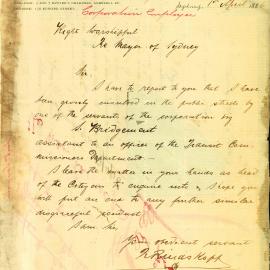 Corporation Employee
Sydney, 1st April 188
Right Worshipful
The Mayor of Sydney
Sir,
I have to report to you that I have
been grossly insulted in the public streets by
one of the servants of the corporation by
S. Bridgement
assistant to an officer of the Transit Com-
missioners Department -
I leave the matter in your hands as head
of the City you to enquire into & I hope you
will put an end to any further similar
disgraceful conduct
I am Sir,
Your obedient servant